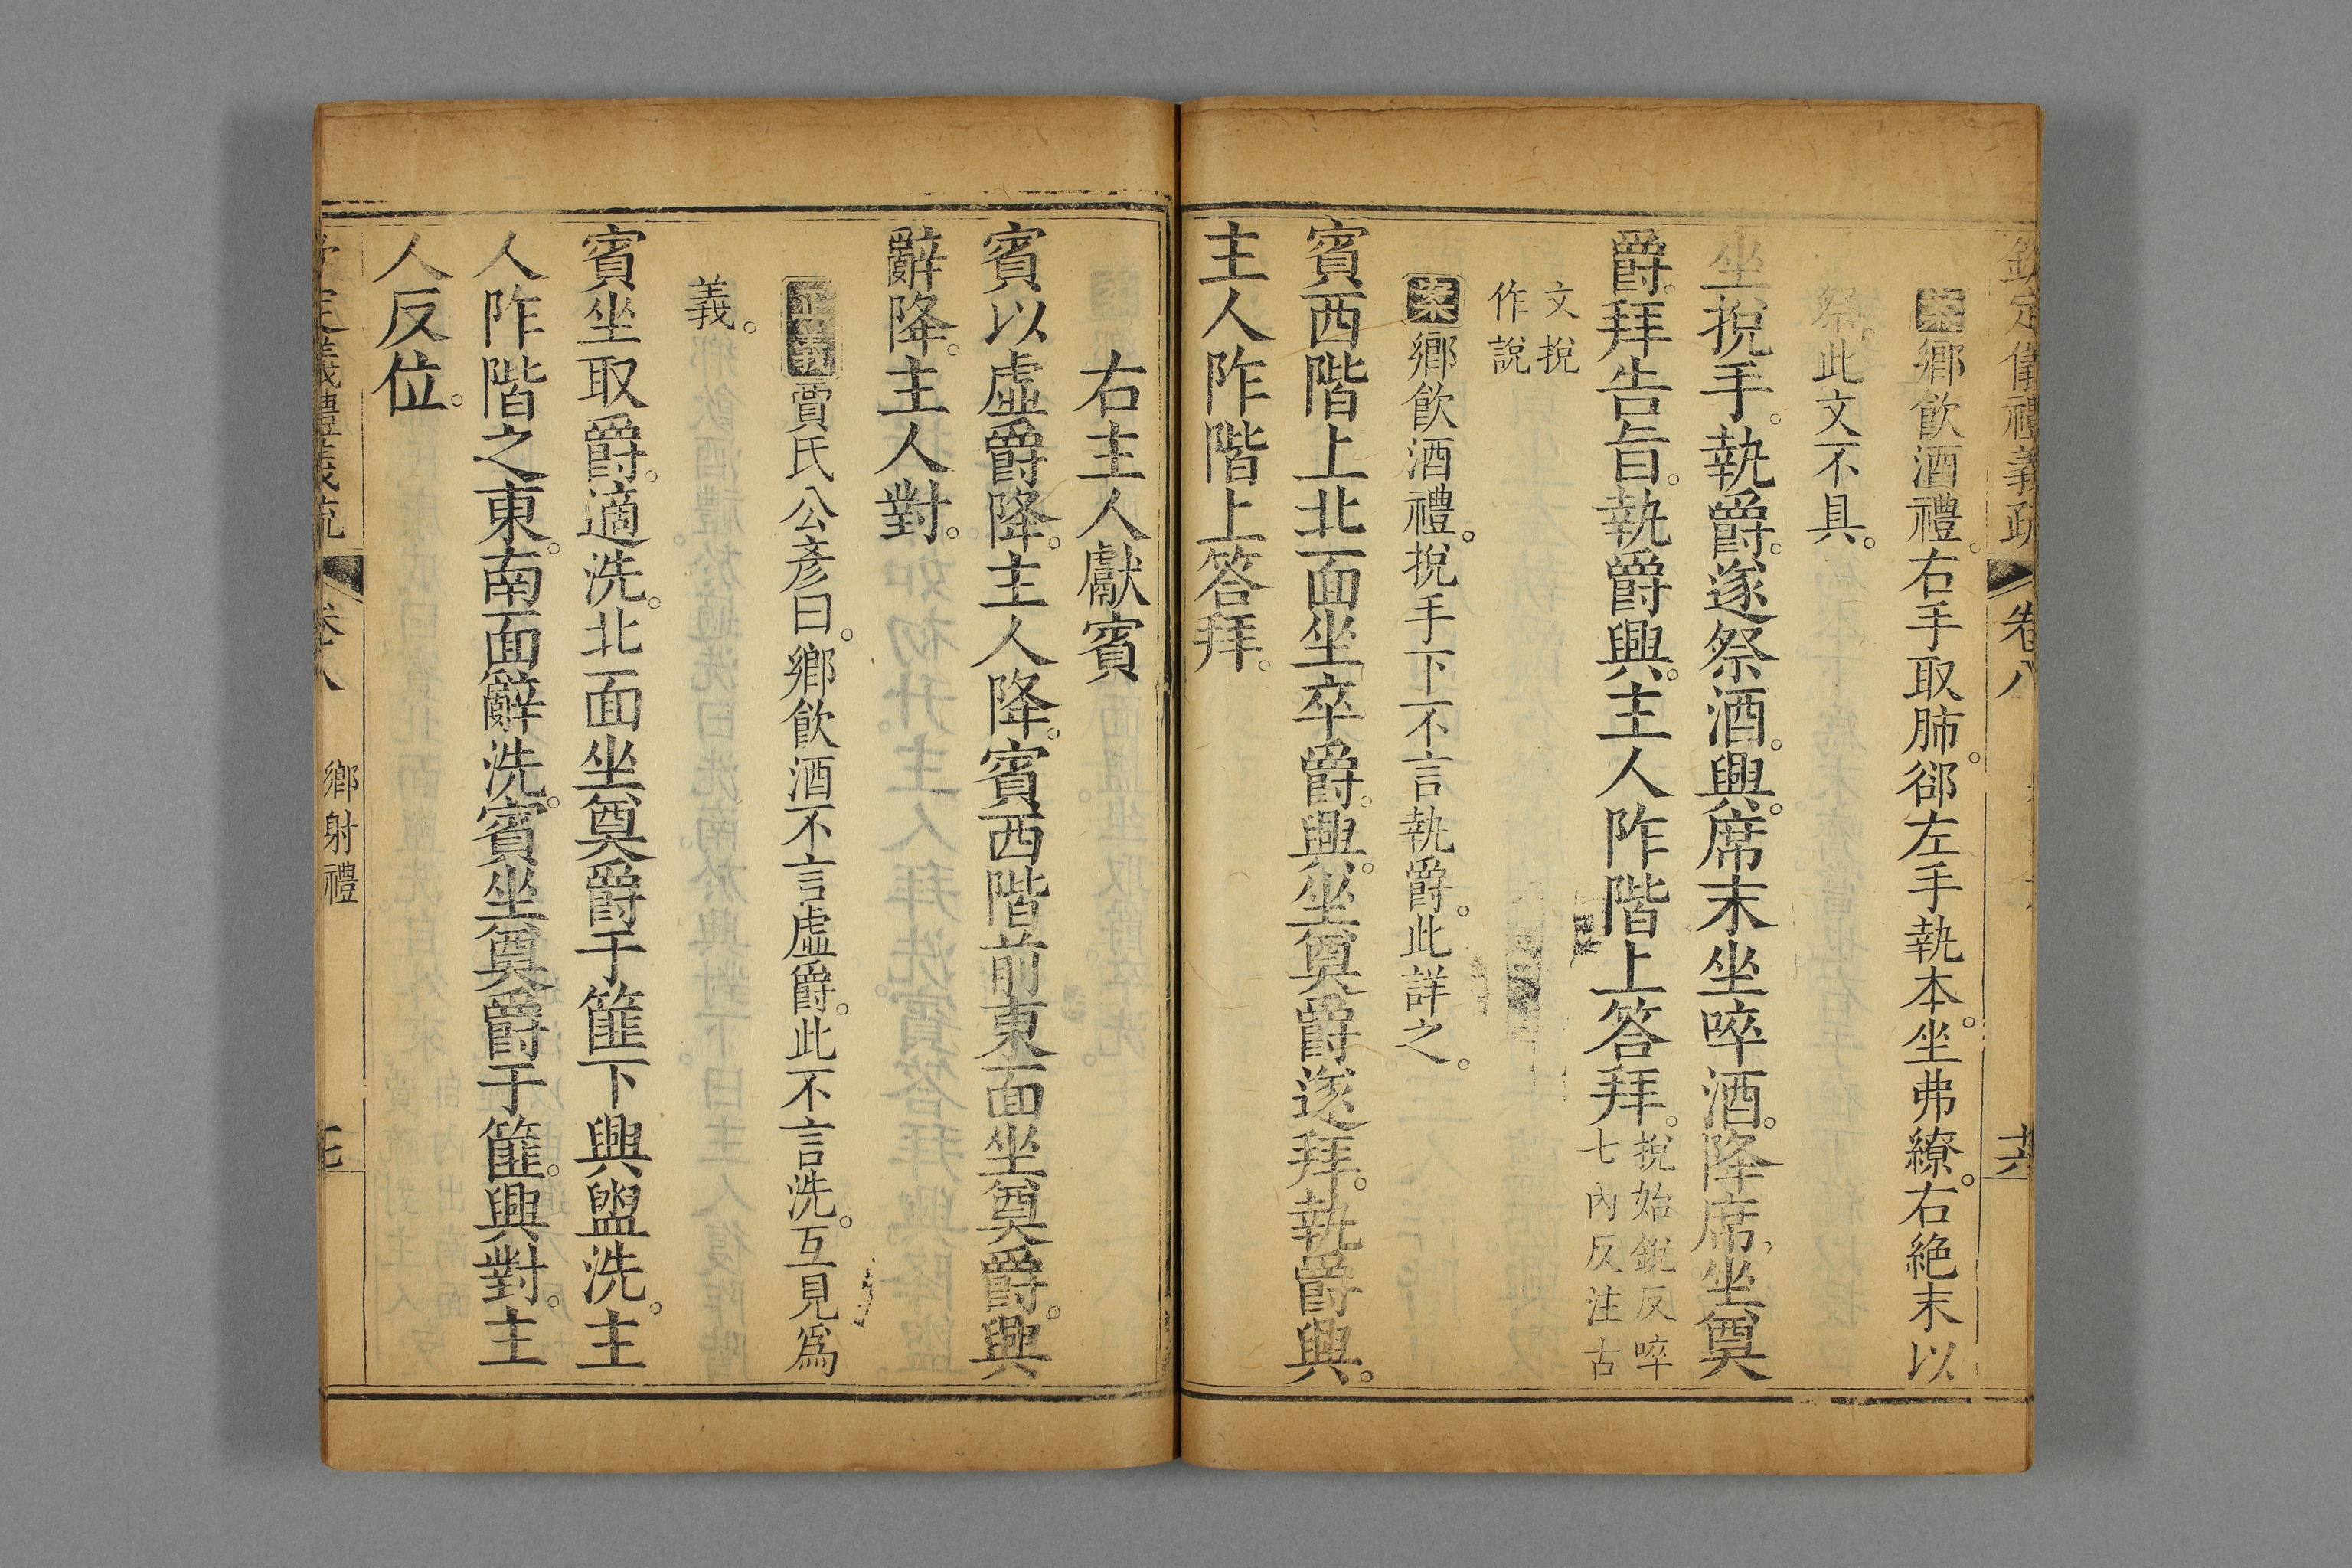 欽定儀禮義疏 卷八 十六
案鄉飲酒禮。右手取肺。郤左手執本。坐弗繚。右絶末以
祭。此文不具。
坐挩手。執爵。遂祭酒。興。席末坐啐酒。降席。坐奠
爵。拜告旨。執爵興。主人阼階上答拜。挩始銳反啐
七內反注古
文挩
作說
案鄉飲酒禮。挩手下不言執爵。此詳之。
賓西階上北面坐卒爵。興。坐奠爵遂拜。執爵興。
主人阼階上答拜。
右主人獻賓
賓以虛爵降。主人降。賓西階前東面坐奠爵。興
辭降。主人對。
正義賈氏公彥曰。鄉飲酒不言虛爵。此不言洗。互見爲
義。
賓坐取爵。適洗。北面坐奠爵于篚下興盥洗。主
人阼階之東。南面辭洗。賓坐奠爵于篚。興對。主
人反位。
欽定儀禮義疏 卷八 鄉射禮 十七